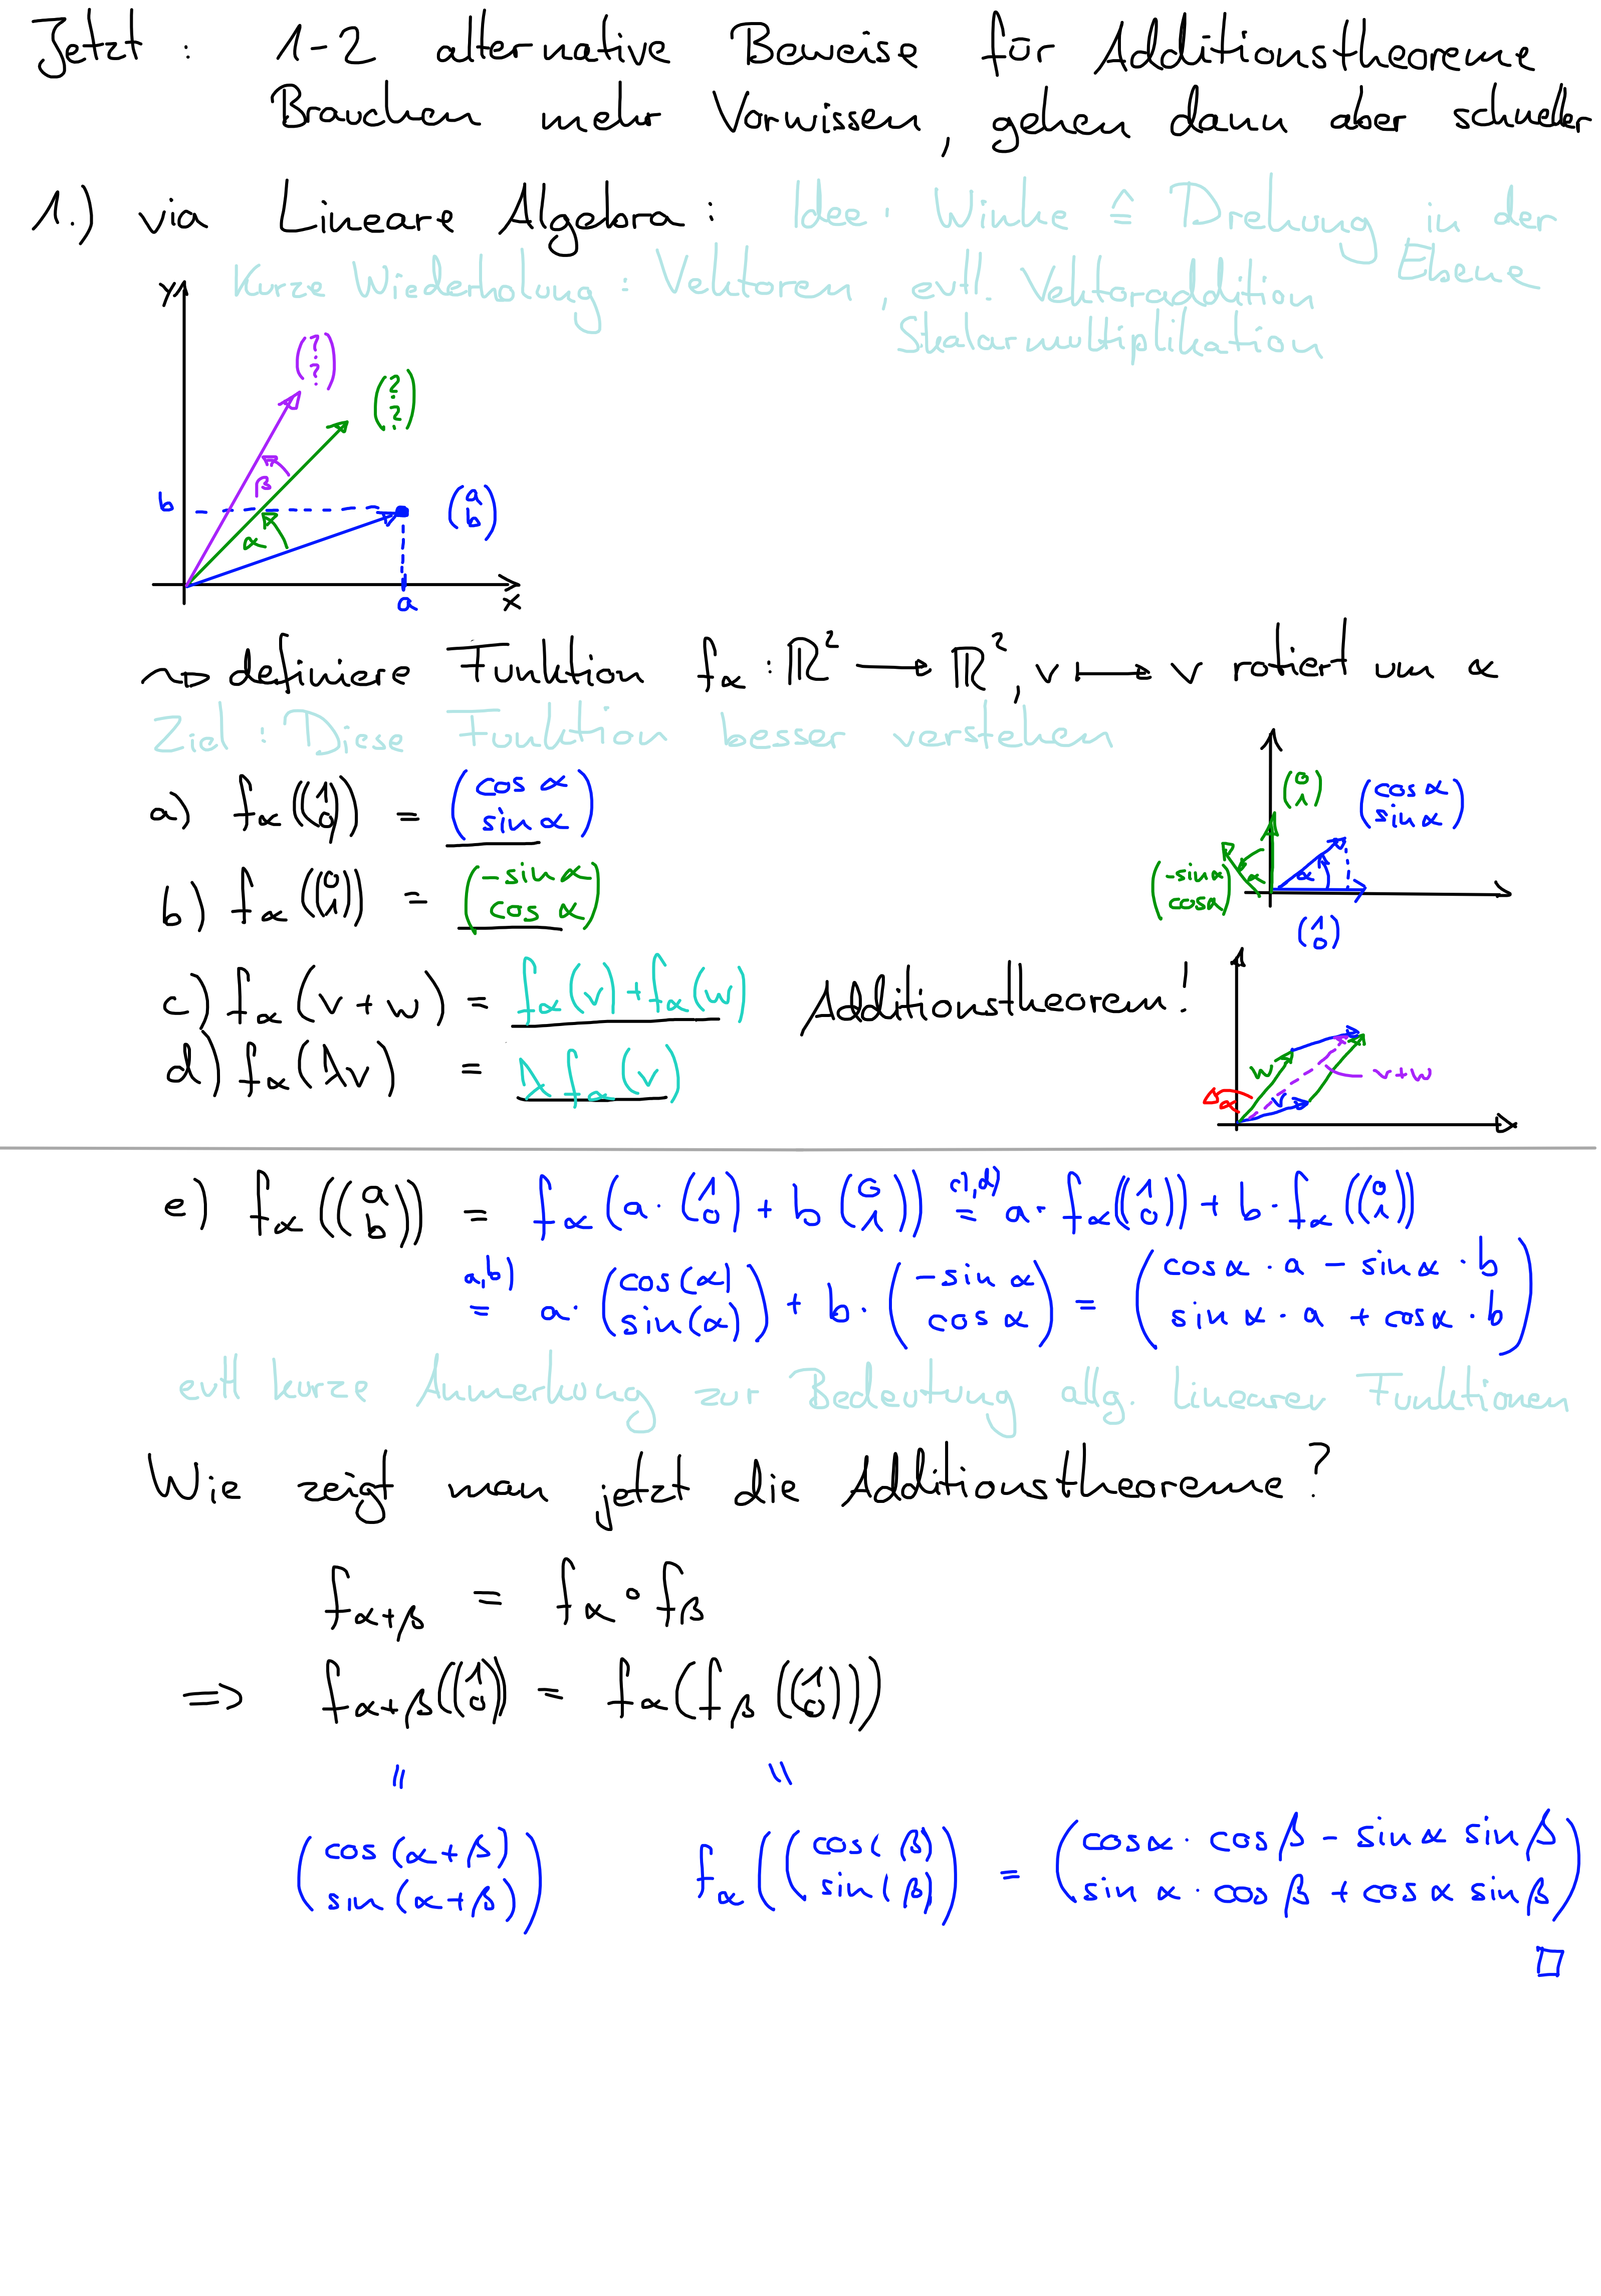 Jetzt : 1-2 alternative Beweise für Additionstheoreme
Brauchen mehr Vorwissen, gehen dann aber schneller
1.) via Lineare Algebra : Idee : Winke ≙ Drehung in der
Ebene
Kurze Wiederholung : Vektoren, evtl. Vektoraddition
Skalarmultiplikation
y
(? ?)
(? ?)
β
b
(a b)
α
a
x
~> definiere Funktion f_α : ℝ² ⟶ ℝ², v ⟼ v rotiert um α
Ziel : Diese Funktion besser verstehen
a) f_α((1 0)) = (cos α sin α)
b) f_α((0 1)) = (-sin α cos α)
(0 1)
(cos α sin α)
α
α
(-sin α cos α)
(1 0)
c) f_α(v+w) = f_α(v)+f_α(w) Additionstheorem!
d) f_α(λv) = λ f_α(v)
w
v+w
α
v
e) f_α((a b)) = f_α(a·(1 0) + b(0 1)) =^{c),d)} a·f_α((1 0)) + b·f_α((0 1))
=^{a,b)} a·(cos(α) sin(α)) + b·(-sin α cos α) = (cos α · a - sin α · b sin α · a + cos α · b)
evtl kurze Anmerkung zur Bedeutung allg. linearer Funktionen
Wie zeigt man jetzt die Additionstheoreme?
f_{α+β} = f_α ∘ f_β
=> f_{α+β}((1 0)) = f_α(f_β((1 0)))
= =
(cos(α+β) sin(α+β)) f_α((cos(β) sin(β)) = (cos α · cos β - sin α sin β sin α · cos β + cos α sin β)
□